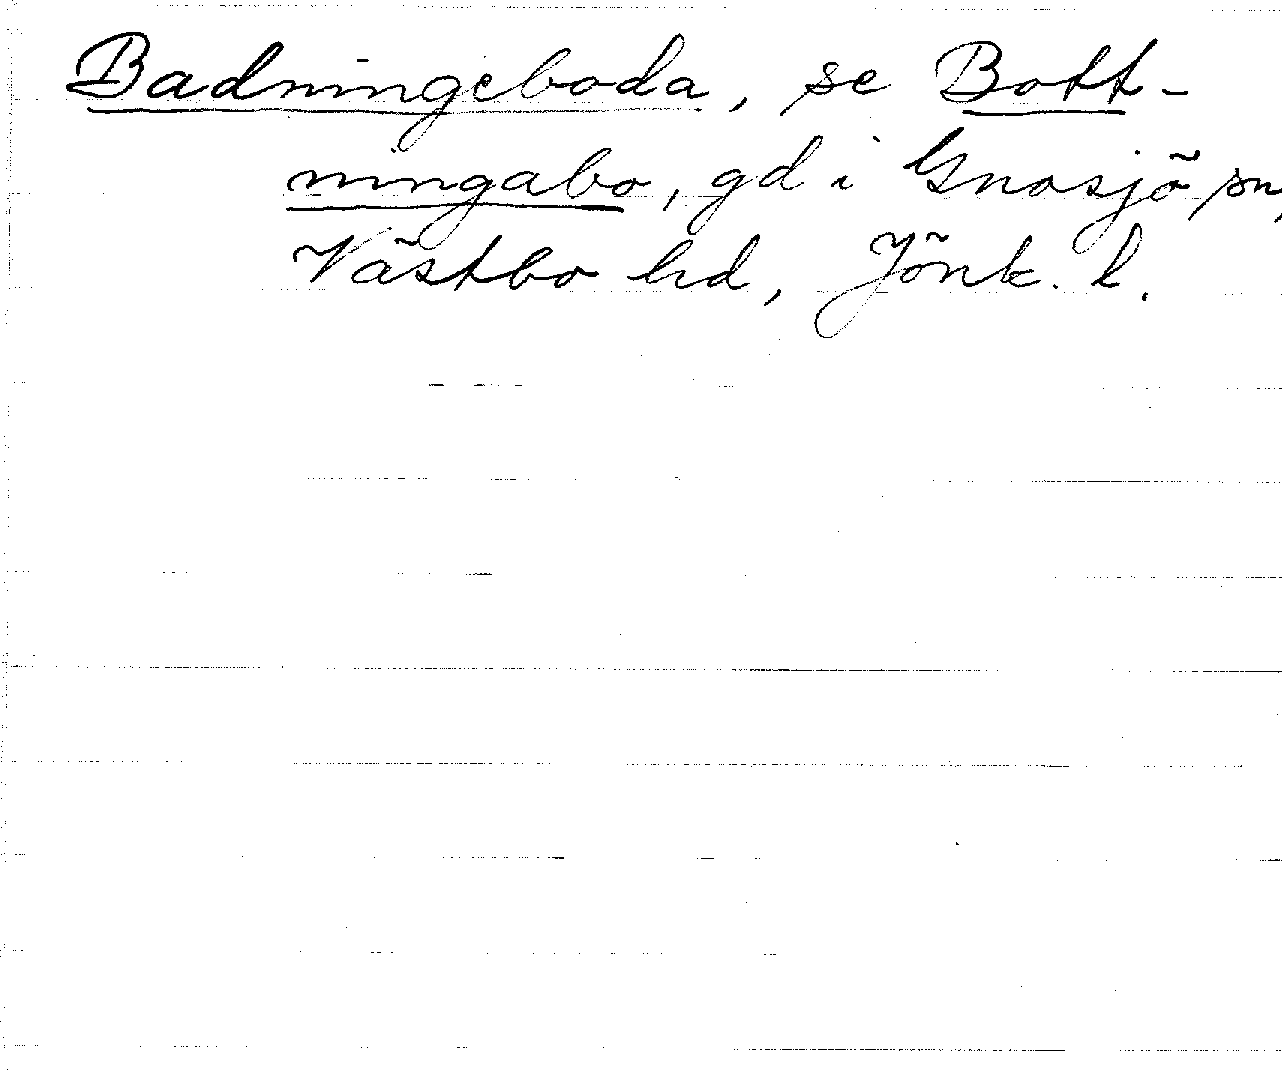 Badningeboda, se Bott-
ningabo, gd i Gnosjö sn,
Västbo hd, Jönk. l.